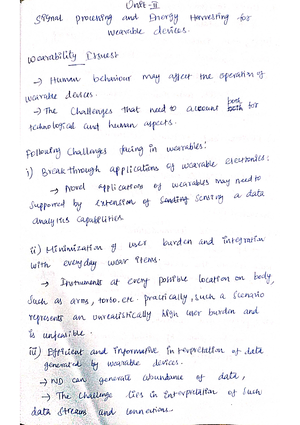 Unit-II
Signal processing and Energy Harvesting for
wearable devices.
Wearability Issues:
→ Human behaviour may affect the operation of
wearable devices.
→ The challenges that need to account both for
technological and human aspects.
Following challenges facing in wearables:
i) Break through applications of wearable electronics:
→ Novel applications of wearables may need to
supported by extension of sensing a data
analytics capabilities.
ii) Minimization of user burden and integration
with everyday wear items.
→ Instruments at every possible location on body,
such as arms, torso.etc. practically, such a scenario
represents an unrealistically high user burden and
is unfeasible.
iii) Efficient and informative interpretation of data
generated by wearable devices.
→ can generate abundance of data,
→ The challenge lies in interpretation of such
data streams and connections.